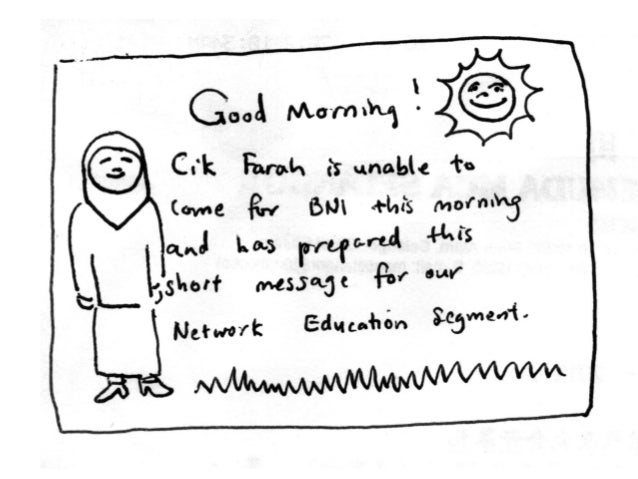 Good Morning!
Cik Farah is unable to
come for BNI this morning
and has prepared this
short message for our
Network Education Segment.